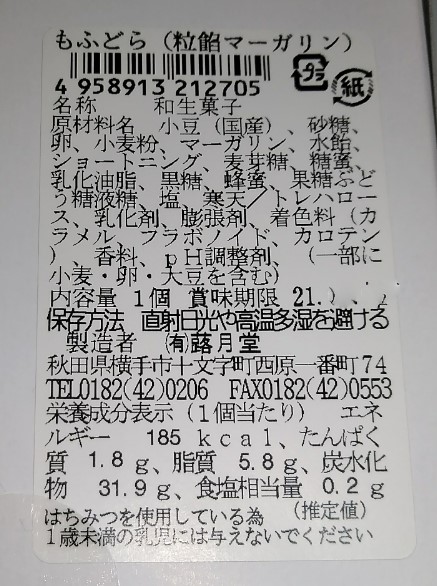 もふどら（粒餡マーガリン）
4 958913 212705
プラ
紙
名称　和生菓子
原材料名　小豆（国産）、砂糖、
卵、小麦粉、マーガリン、水飴、
ショートニング、麦芽糖、糖蜜、
乳化油脂、黒糖、蜂蜜、果糖ぶど
う糖液糖、塩、寒天／トレハロー
ス、乳化剤、膨張剤、着色料（カ
ラメル、フラボノイド、カロテン
）、香料、ｐＨ調整剤、（一部に
小麦・卵・大豆を含む）
内容量 1個　賞味期限 21.
保存方法　直射日光や高温多湿を避ける
製造者　㈲蕗月堂
秋田県横手市十文字町西原一番町74
TEL0182(42)0206　FAX0182(42)0553
栄養成分表示（1個当たり）　エネ
ルギー　185 kcal、たんぱく
質 1.8g、脂質 5.8g、炭水化
物 31.9g、食塩相当量 0.2g
（推定値）
はちみつを使用している為
1歳未満の乳児には与えないでください